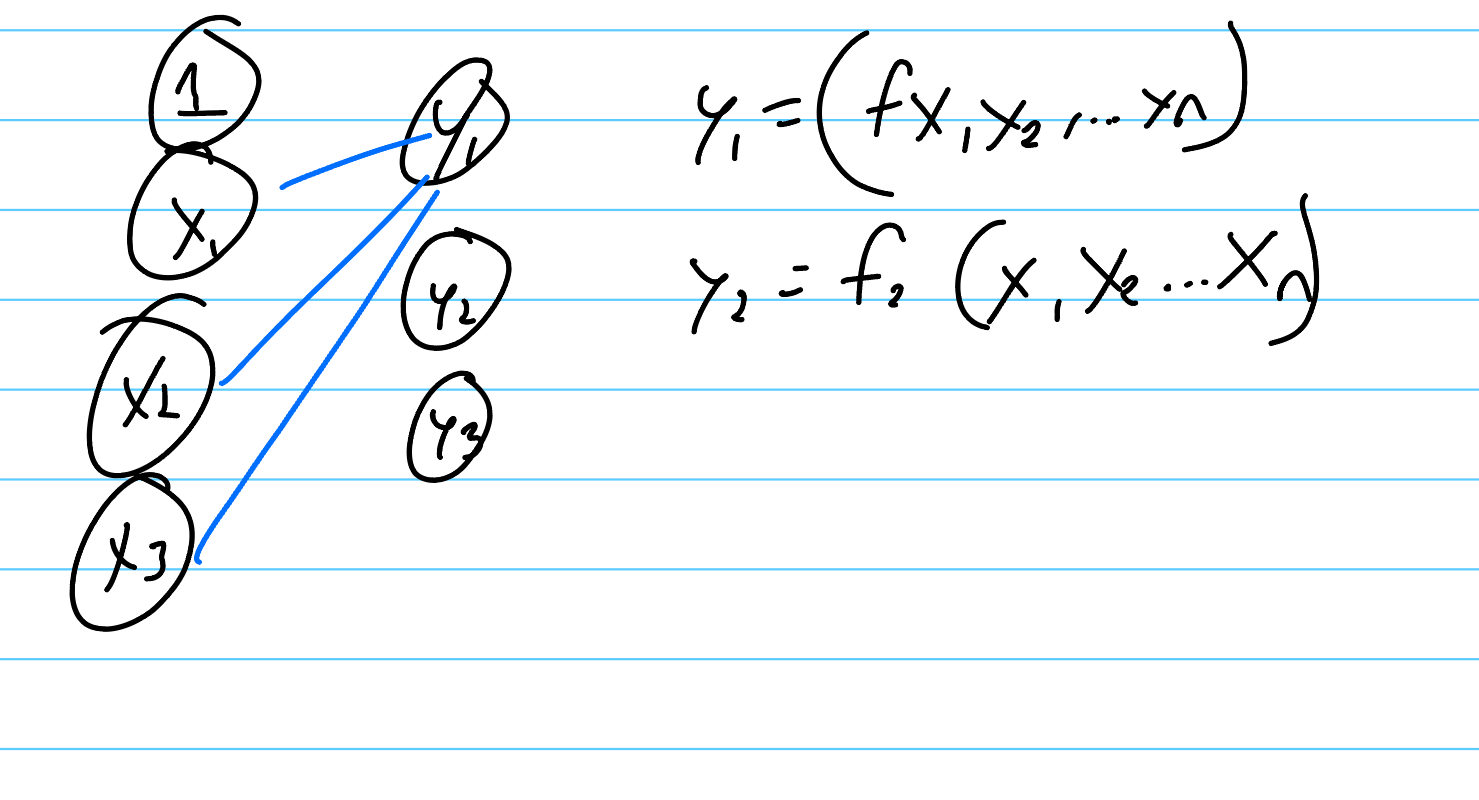 1
x₁
x₂
x₃
y₁
y₂
y₃
y₁ = (f x₁ x₂, ... xₙ)
y₂ = f₂ (x₁ x₂ ... xₙ)